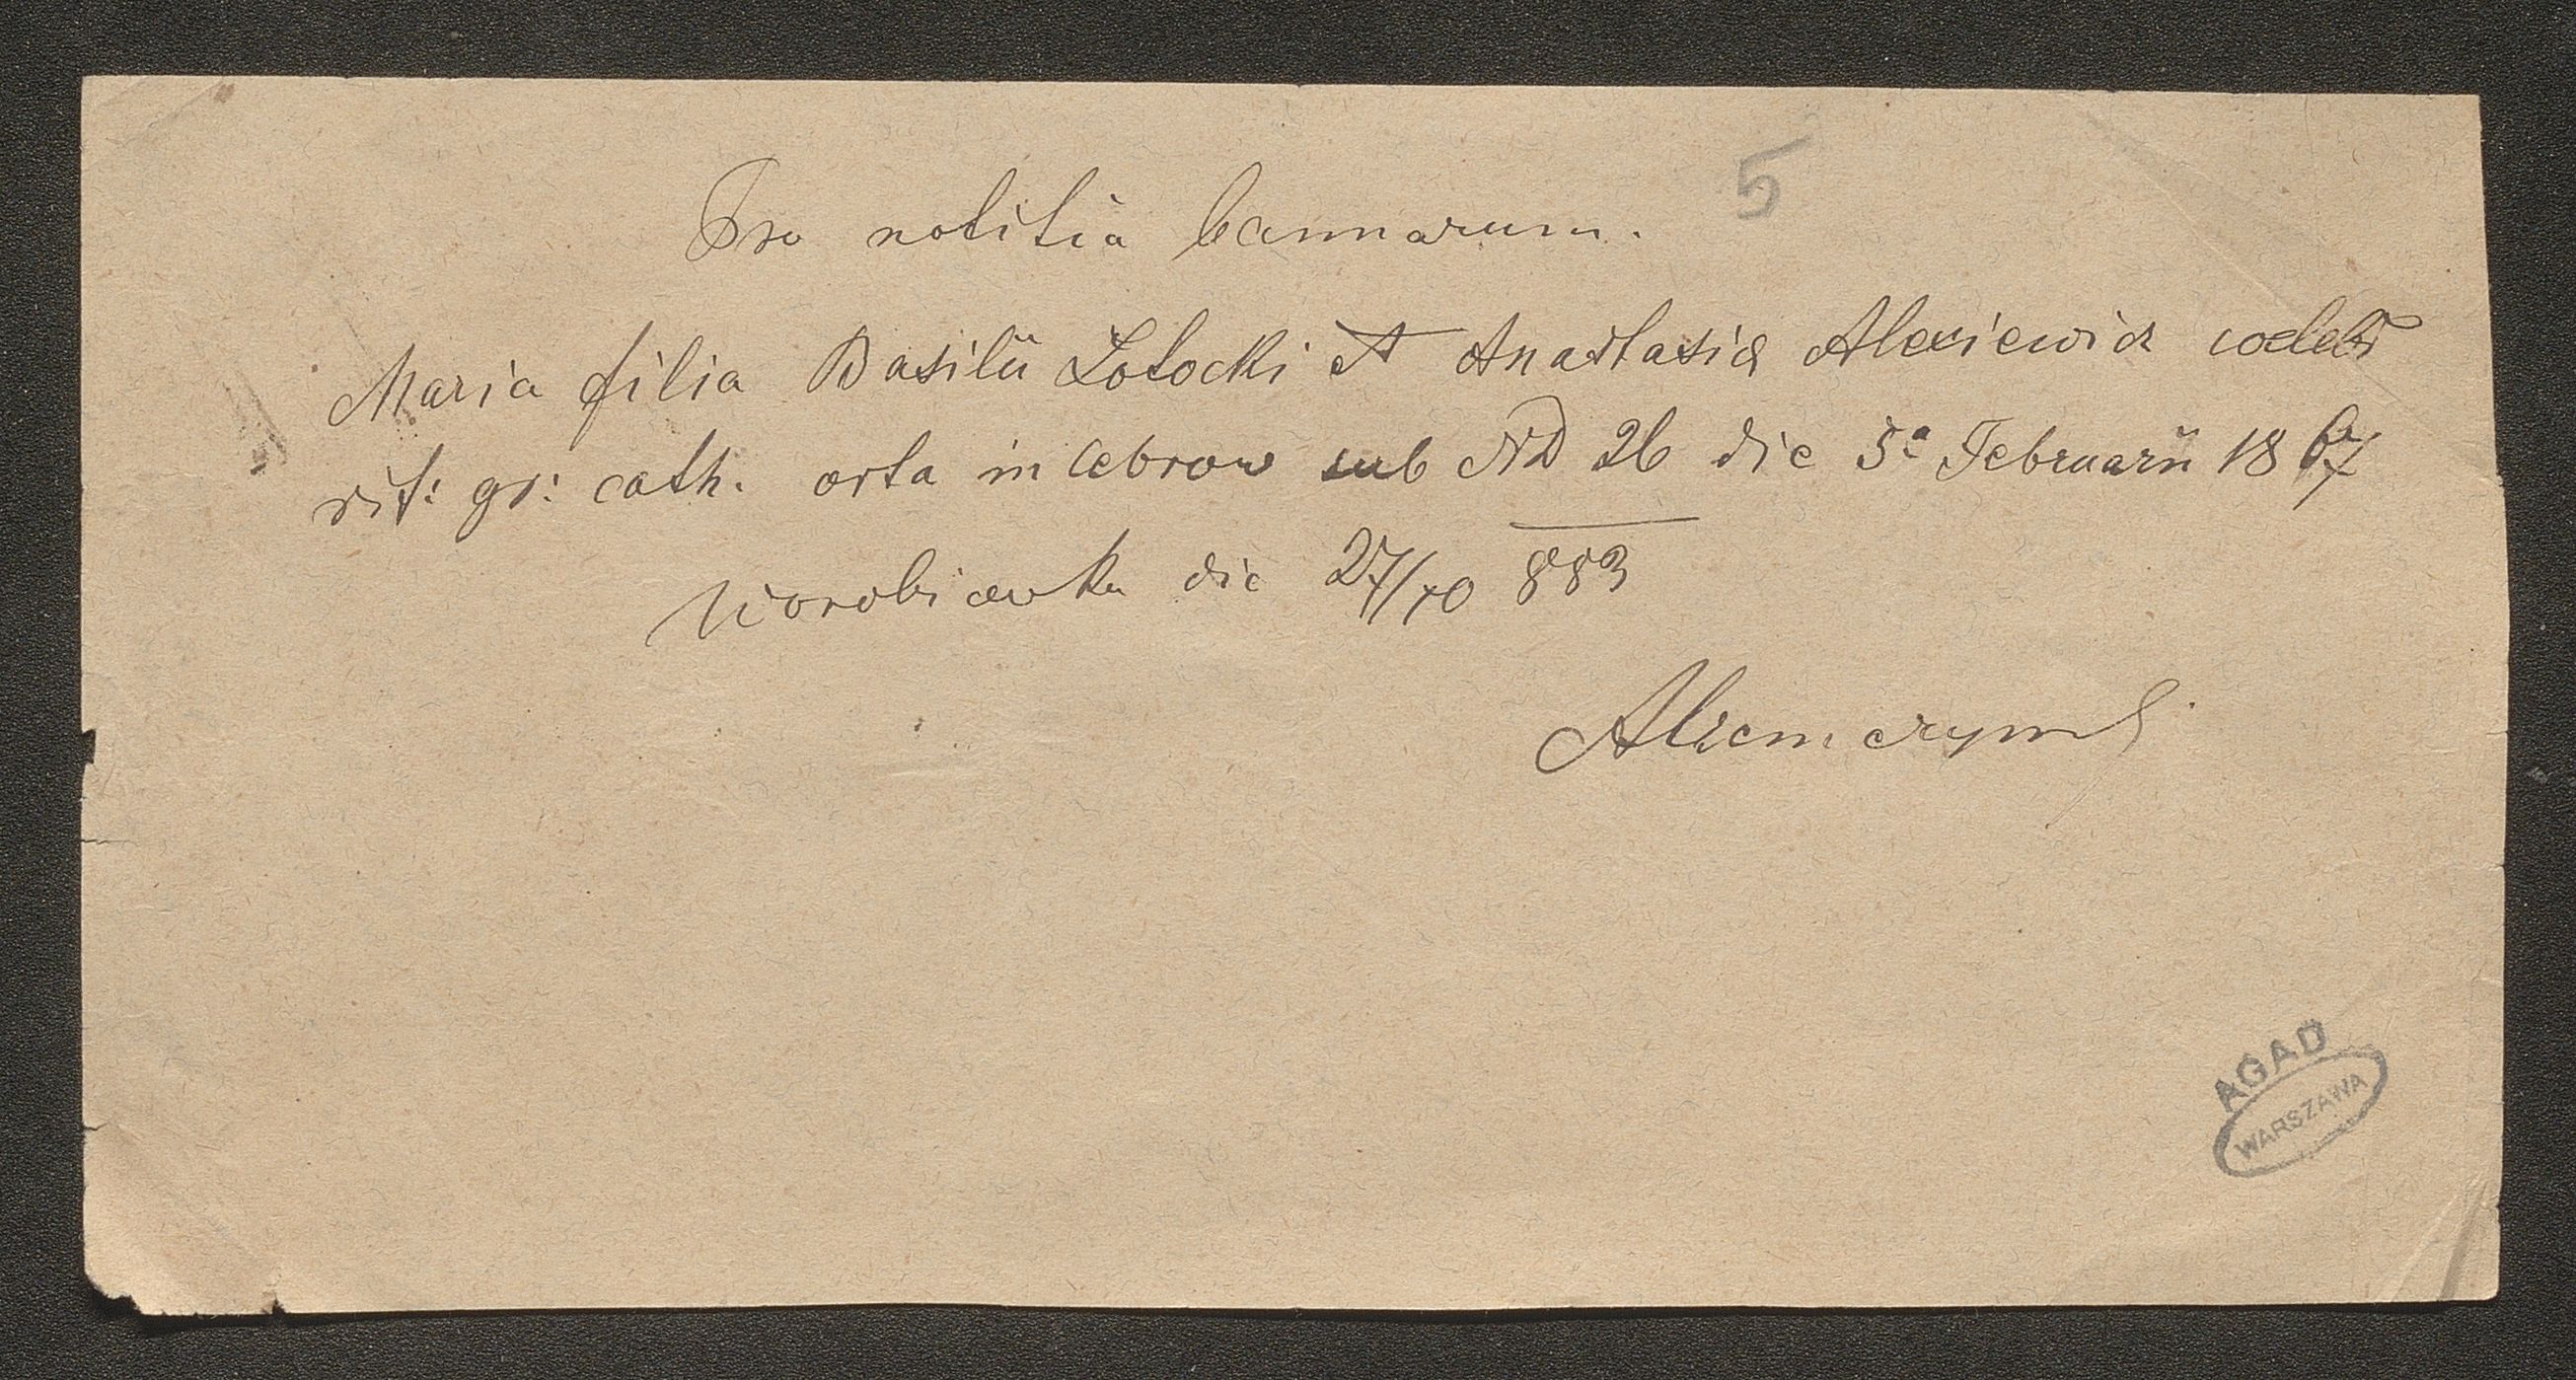 5
Pro notitia bannarum.
Maria filia Basilii Łotocki et Anastasia Alexiewicz
rit: gr: cath. orta in Cebrow sub ND 26 die 5a Februarii 1867
Worobiowka die 27/10 883
AGAD
WARSZAWA